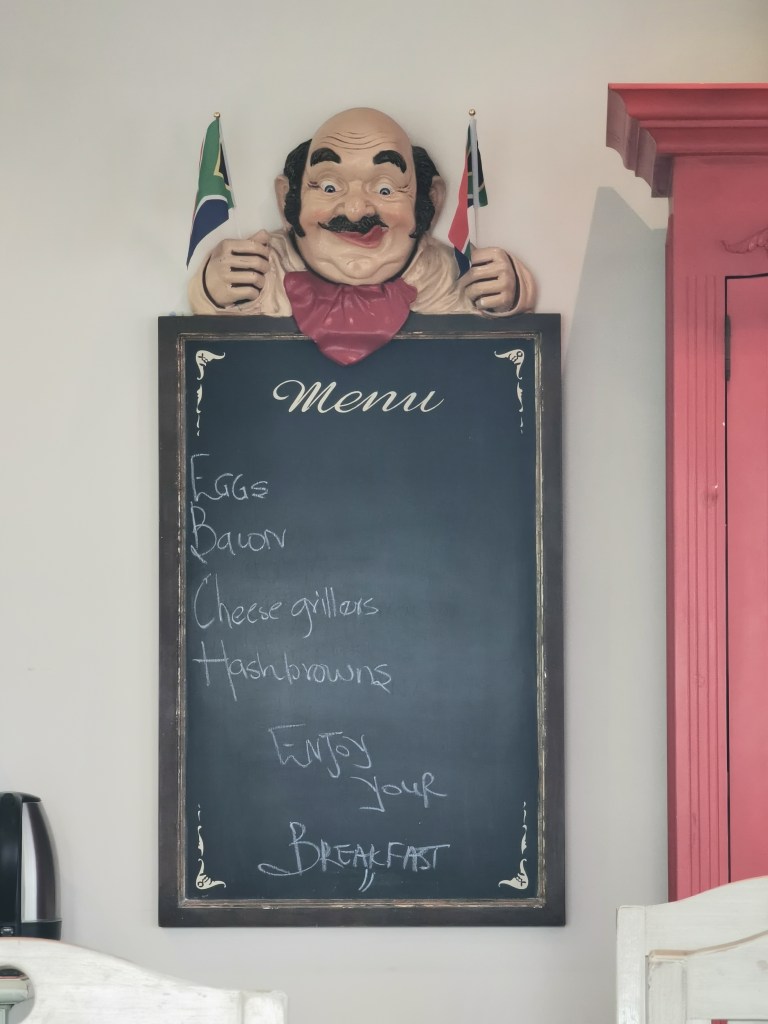 Menu
EGGs
Bacon
Cheese grillers
Hashbrowns
ENJOY
YOUR
BREAKFAST